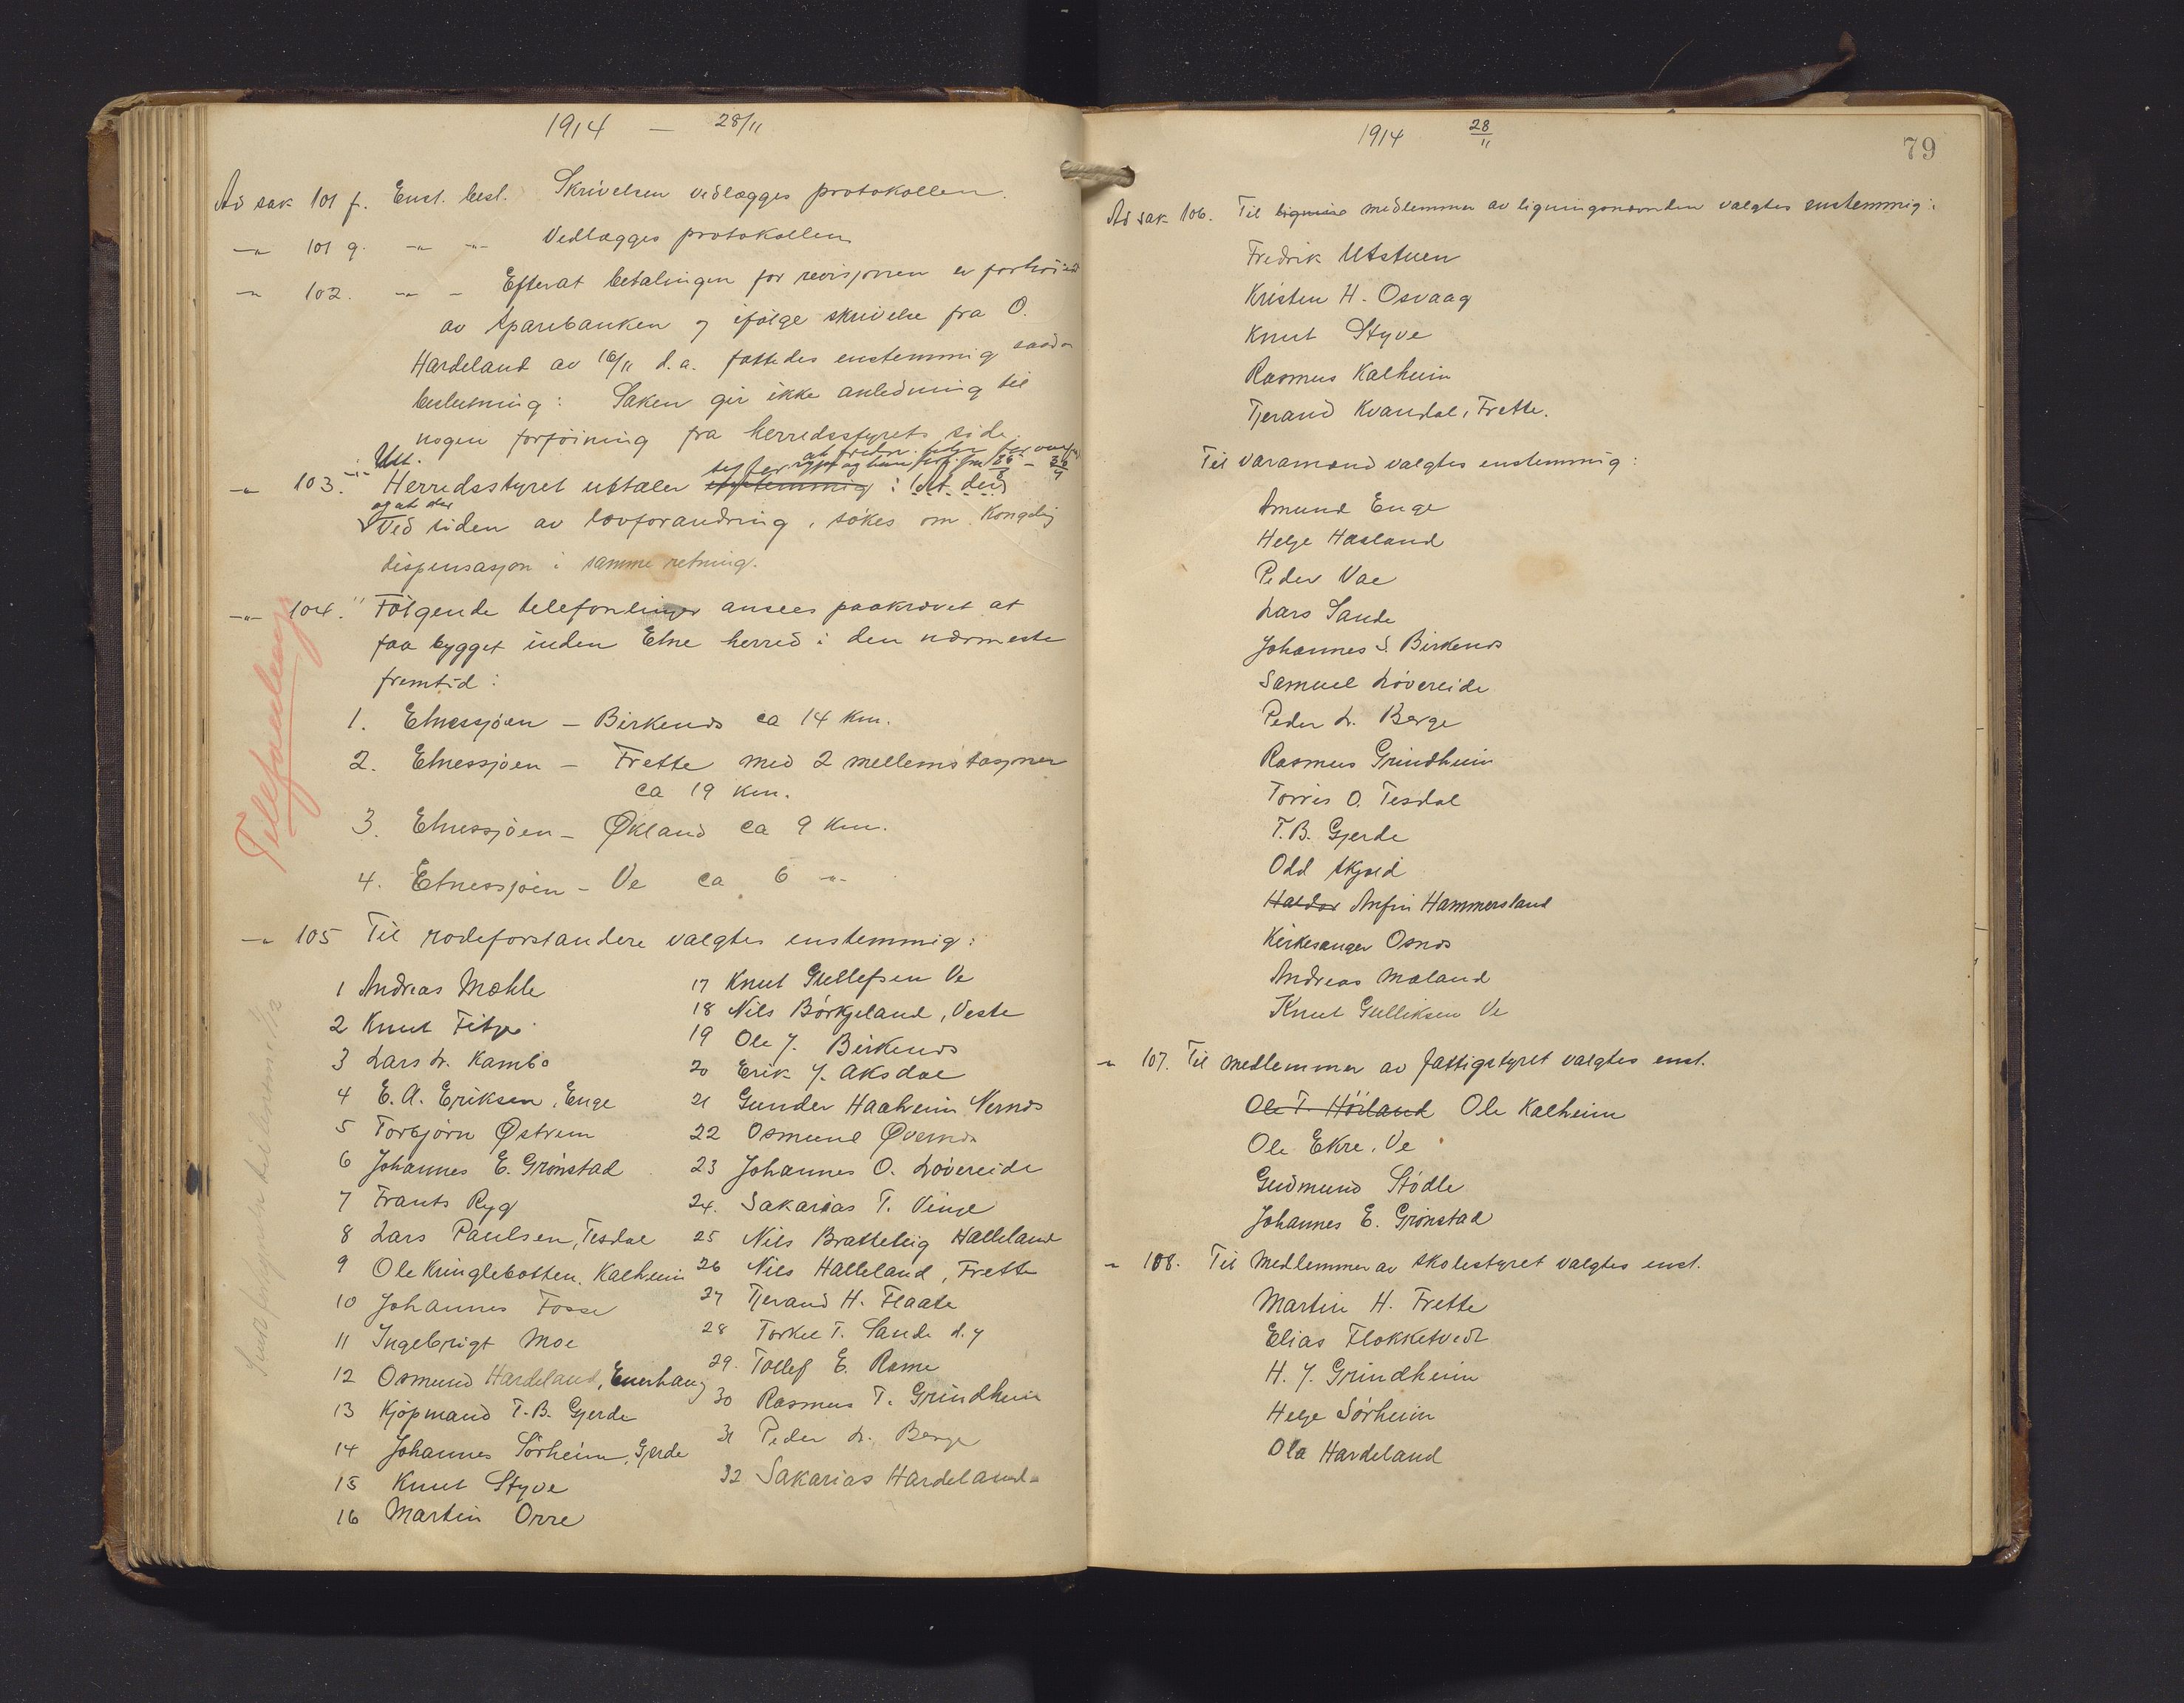 1914 — 28/11
Ad sak 101 f. Enst. besl. Skrivelsen vedlægges protokollen.
-"- 101 g. -"- -"- Vedlægges protokollen
-"- 102. -"- - Efterat betalingen for revisjonen er forhöiet
av Sparebanken og ifölge skrivelse fra O.
Hardeland av 16/11 d.a. fattedes enstemmig saadan
beslutning: Saken gir ikke anledning til
nogen forföining fra herredsstyrets side.
-"- 103. Herredsstyret uttaler enstemmig:
og at der
Ved siden av lovforandring, sökes om Kongelig
dispensasjon i samme retning.
-"- 104. Fölgende telefonlinjer ansees paakrævet at
faa bygget inden Etne herred i den nærmeste
fremtid:
1. Etnessjöen – Birkenes ca 14 km.
2. Etnessjöen – Frette med 2 mellemstasjoner
ca 19 km.
3. Etnessjöen – Økland ca 9 km.
4. Etnessjöen – Ve ca 6 -"-
Telefonanlæg
-"- 105 Til rodeforstandere valgtes enstemmig:
1 Andreas Mæhle
2 Knut Fitje
3 Lars L. Kambo
4 E. A. Eriksen, Enge
5 Torbjörn Østrem
6 Johannes E. Grönstad
7 Frants Ryg
8 Lars Paulsen, Tesdal
9 Ole Kringlebotten, Kalheim
10 Johannes Fosse
11 Ingebrigt Moe
12 Osmund Hardeland, Enerhaug
13 Kjöpmand T. B. Gjerde
14 Johannes Sörheim, Gjerde
15 Knut Styve
16 Martin Orre
17 Knut Gullefsen Ve
18 Nils Börkjeland, Veste
19 Ole J. Birkenes
20 Erik J. Aksdal
21 Gunder Haaheim Nernes
22 Osmund Øvernes
23 Johannes O. Lövereide
24. Sakarias T. Vinje
25 Nils Bratteteig Halleland
26 Nils Halleland, Frette
27 Tjerand H. Flaate
28 Torkel T. Sande d.y
29. Tollef E. Rame
30 Rasmus T. Grindheim
31 Peder L. Berge
32 Sakarias Hardeland
1914 28/11
79
Ad sak 106. Til ligning medlemmer av ligningsnemnden valgtes enstemmig:
Fredrik Utstuen
Kristen H. Osvaag
Knut Styve
Rasmus Kalheim
Tjerand Kvandal, Frette.
Til varamænd valgtes enstemmig:
Amund Enge
Helge Håsland
Peder Vae
Lars Sande
Johannes S. Birkenes
Samuel Lövereide
Peder L. Berge
Rasmus Grindheim
Torris O. Tesdal
T. B. Gjerde
Odd Skjold
Haldor Anfin Hammersland
Kirkesanger Osnes
Andreas Mæland
Knut Gulliksen Ve
-"- 107. Til medlemmer av fattigstyret valgtes enst.
Ole T. Hörland Ole Kalheim
Ole Ekre, Ve
Gudmund Stödle
Johannes E. Grönstad
-"- 108. Til medlemmer av skolestyret valgtes enst.
Martin H. Frette
Elias Flokketvedt
H. J. Grindheim
Helge Sörheim
Ola Hardeland